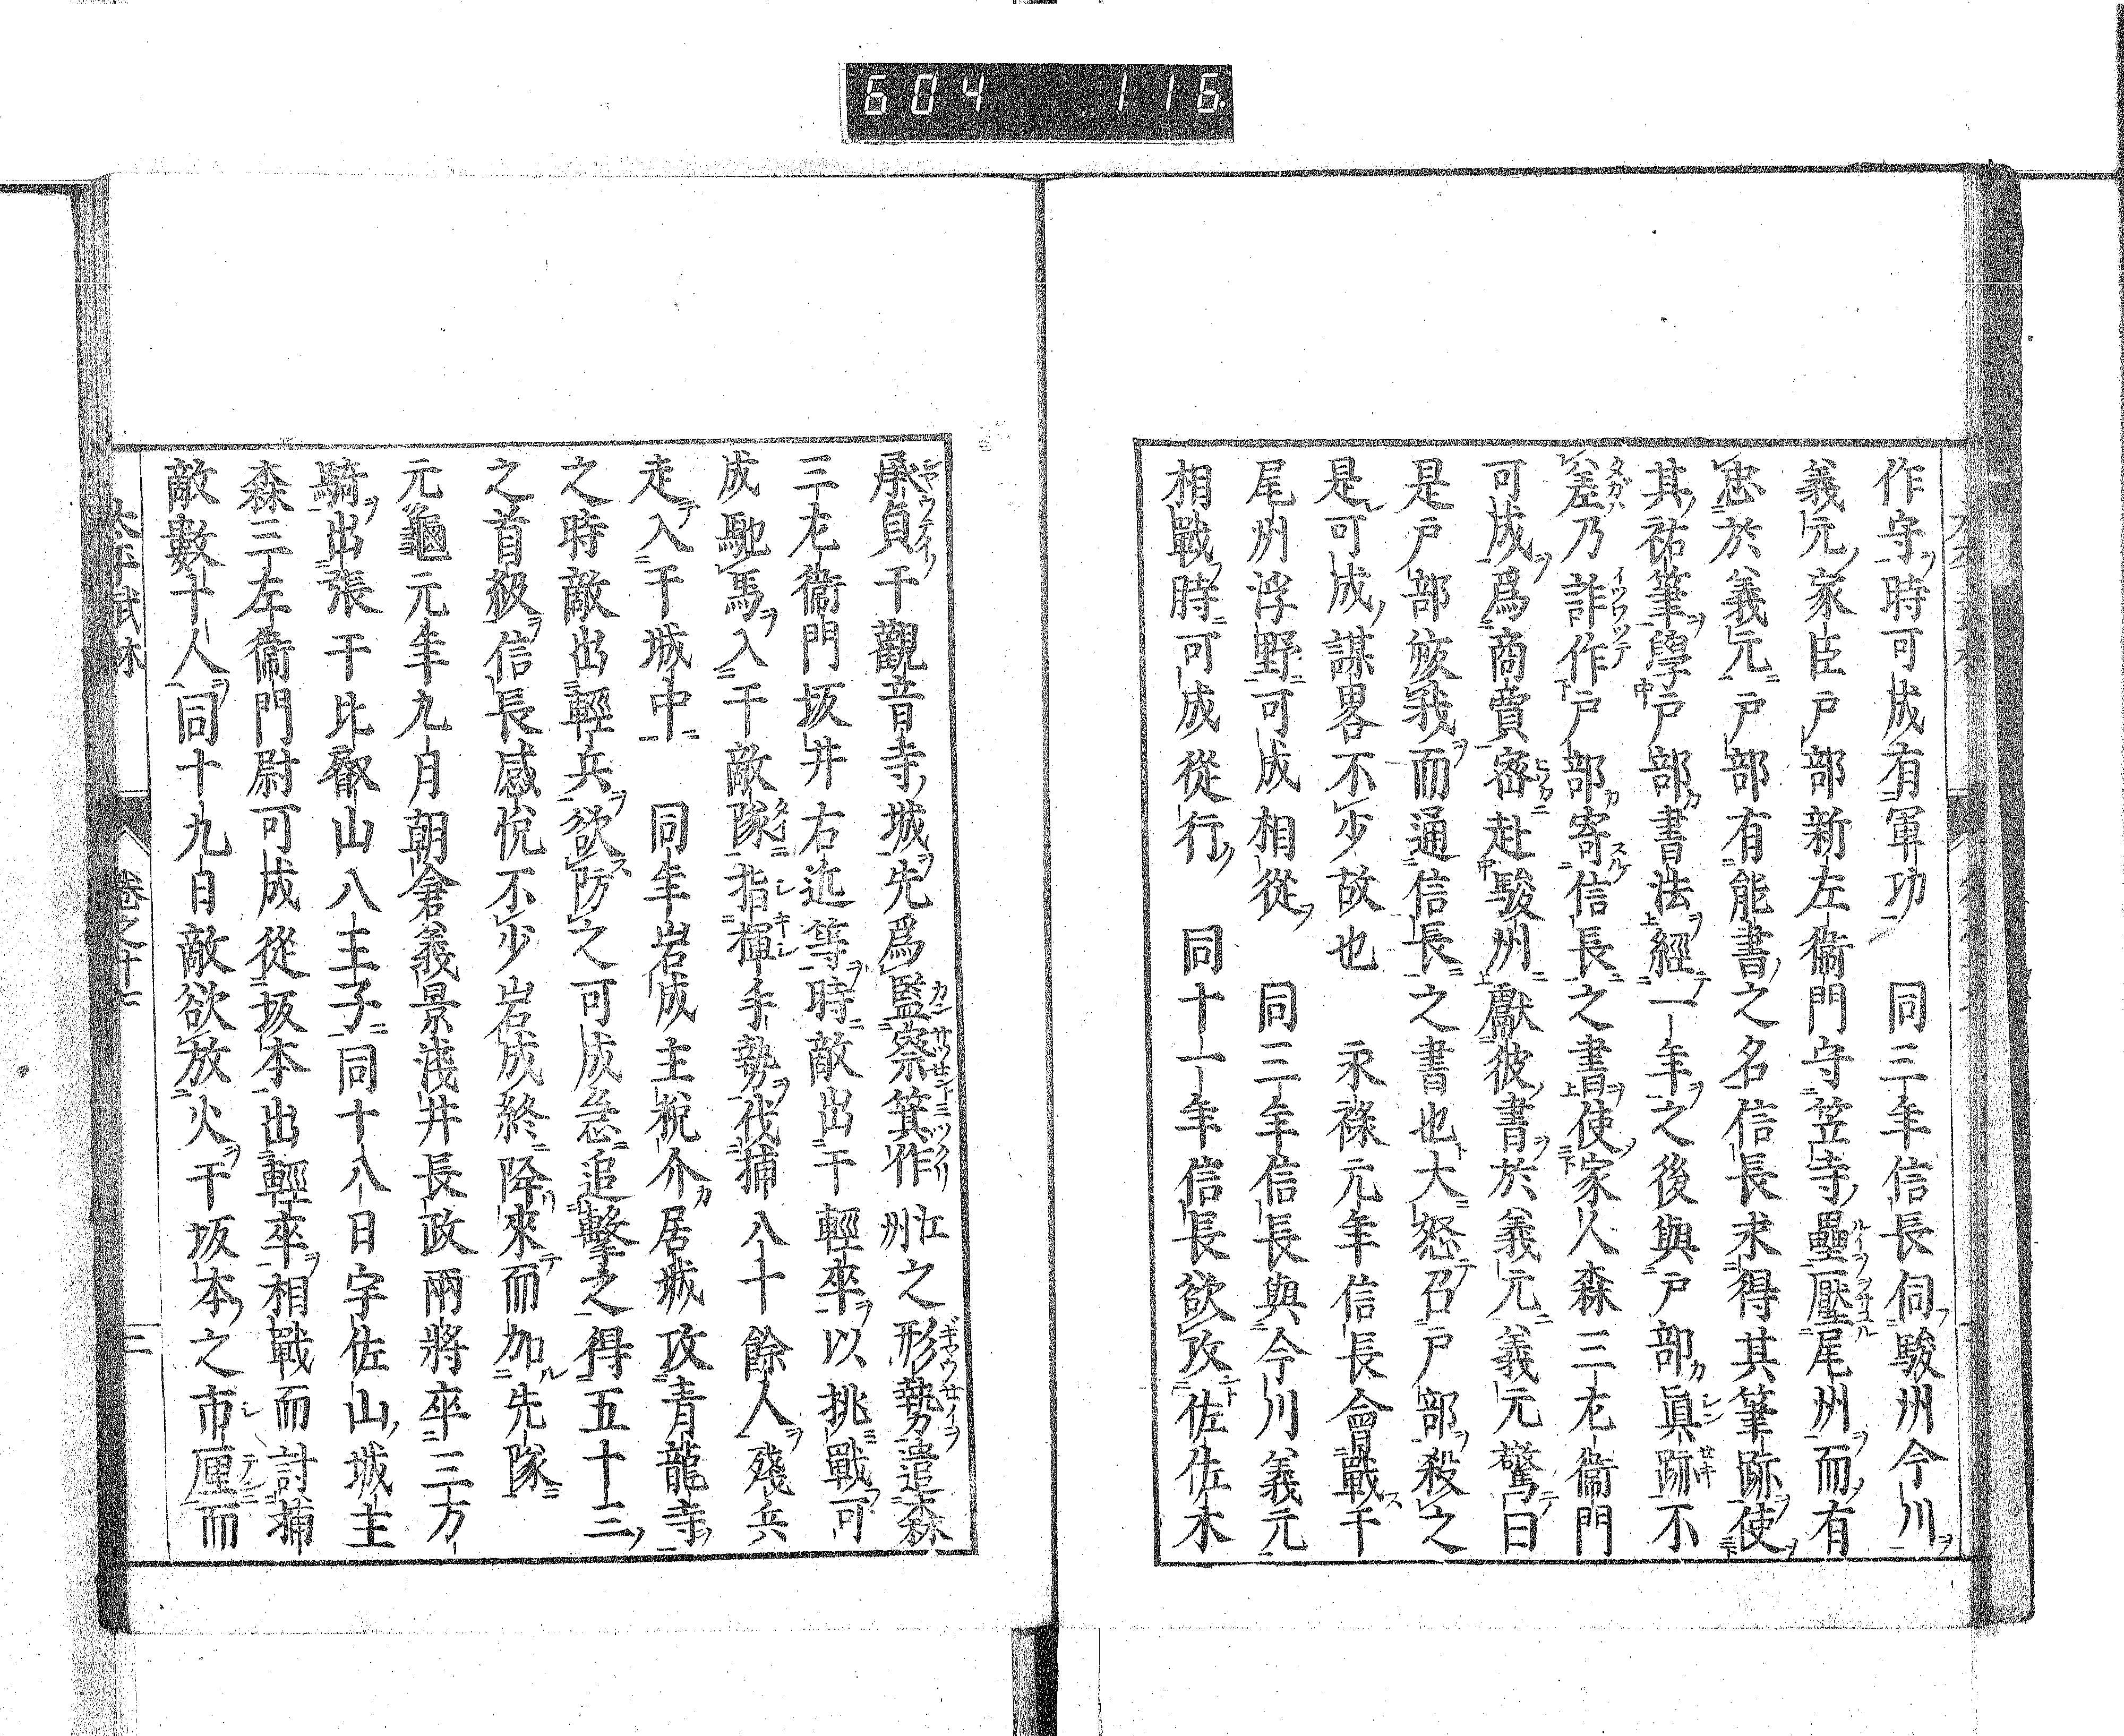 604 116
作守時可成有軍功　同三年信長伺駿州今川
義元家臣戸部新左衞門守笠寺壘壓尾州而有
忠於義元戸部有能書之名信長求得其筆跡使
其祐筆學戸部書法經一年之後與戸部眞跡不
差乃詐作戸部寄信長之書使家人森三左衞門
可成爲商賣密赴駿州獻彼書於義元義元驚曰
是戸部叛我而通信長之書也大怒召戸部殺之
是可成謀畧不少故也　永祿元年信長會戰于
尾州浮野可成相從　同三年信長與今川義元
相戰時可成從行　同十一年信長欲攻佐佐木
承貞于觀音寺城先爲監察箕作江州之形勢遣森
三左衞門坂井右近等時敵出于輕卒以挑戰可
成馳馬入于敵隊指揮手勢伐捕八十餘人殘兵
走入于城中　同年岩成主税介居城攻青龍寺
之時敵出輕兵欲防之可成急追擊之得五十三
之首級信長感悅不少岩成終降來而加先隊
元龜元年九月朝倉義景淺井長政兩將卒三万
騎出張于比叡山八王子同十八日宇佐山城主
森三左衞門尉可成從坂本出輕卒相戰而討捕
敵數十人同十九日敵欲放火于坂本之市厘而
卷之十七　三